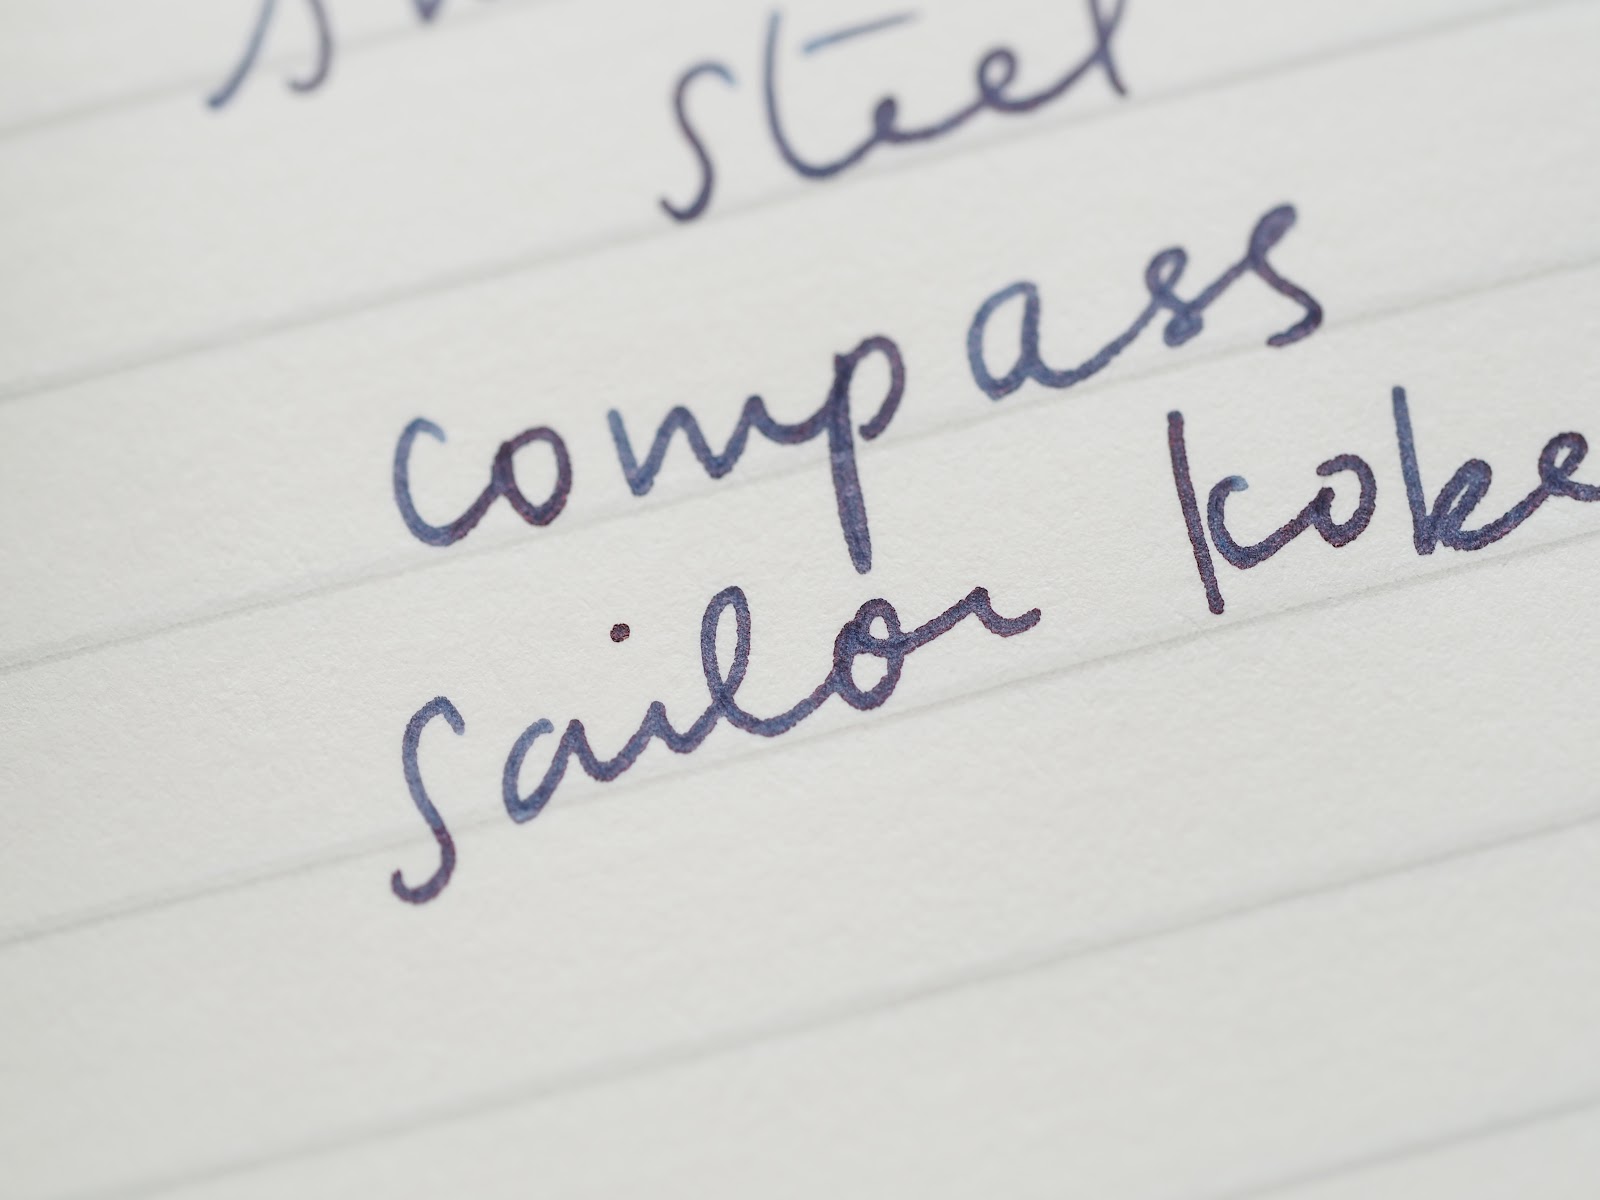 steel
compass
Sailor koke